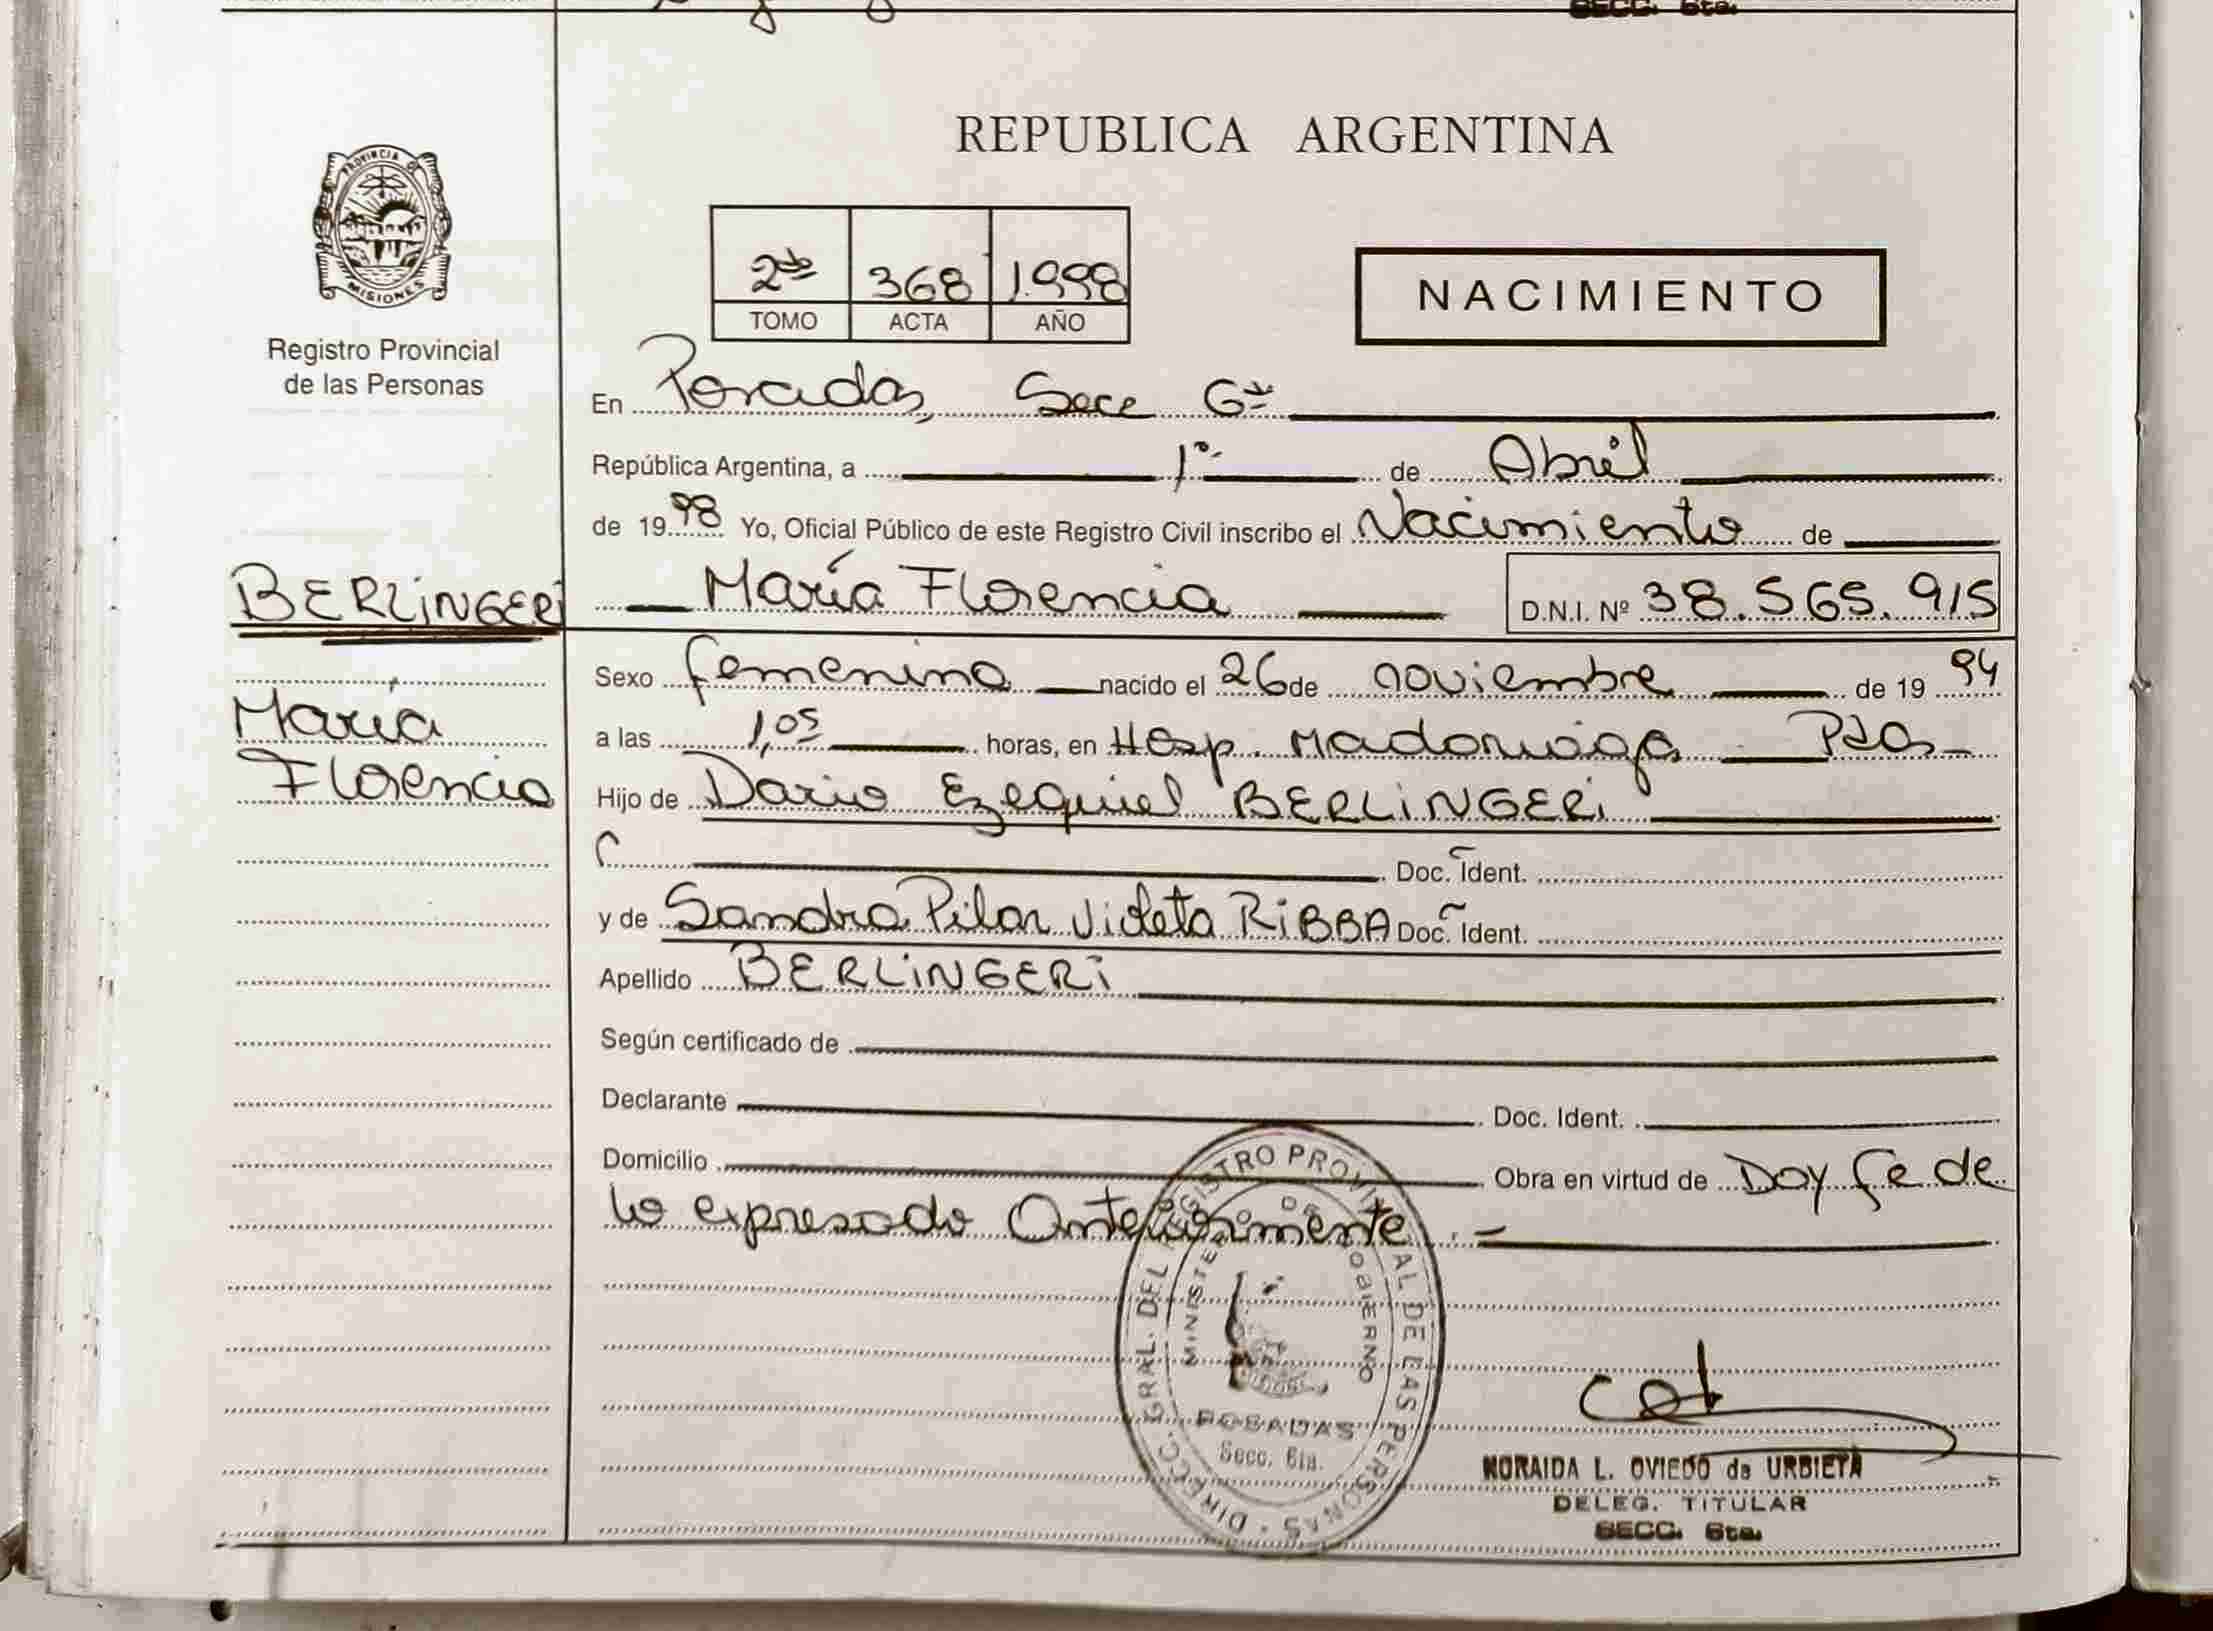 SECC. 6ta.
REPUBLICA ARGENTINA
PROVINCIA DE
MISIONES
Registro Provincial
de las Personas
2do 368 1.998
TOMO ACTA AÑO
NACIMIENTO
En Posadas, Secc 6ta
República Argentina, a 1º de Abril
de 1998 Yo, Oficial Público de este Registro Civil inscribo el Nacimiento de
BERLiNGERi
María Florencia D.N.I. Nº 38.565.915
María
Florencia
Sexo femenino nacido el 26 de noviembre de 1994
a las 1,05 horas, en Hosp. Madariaga Pdas
Hijo de Dario Ezequiel BERLiNGERi
Doc. Ident.
y de Sandra Pilar Violeta RiBBA Doc. Ident.
Apellido BERLiNGERi
Según certificado de
Declarante Doc. Ident.
Domicilio Obra en virtud de Doy fe de
lo expresado Anteriormente.
DIRECC. GRAL. DEL REGISTRO PROVINCIAL DE LAS PERSONAS
MINISTERIO DE GOBIERNO
POSADAS
Secc. 6ta.
NORAIDA L. OVIEDO de URBIETA
DELEG. TITULAR
SECC. 6ta.